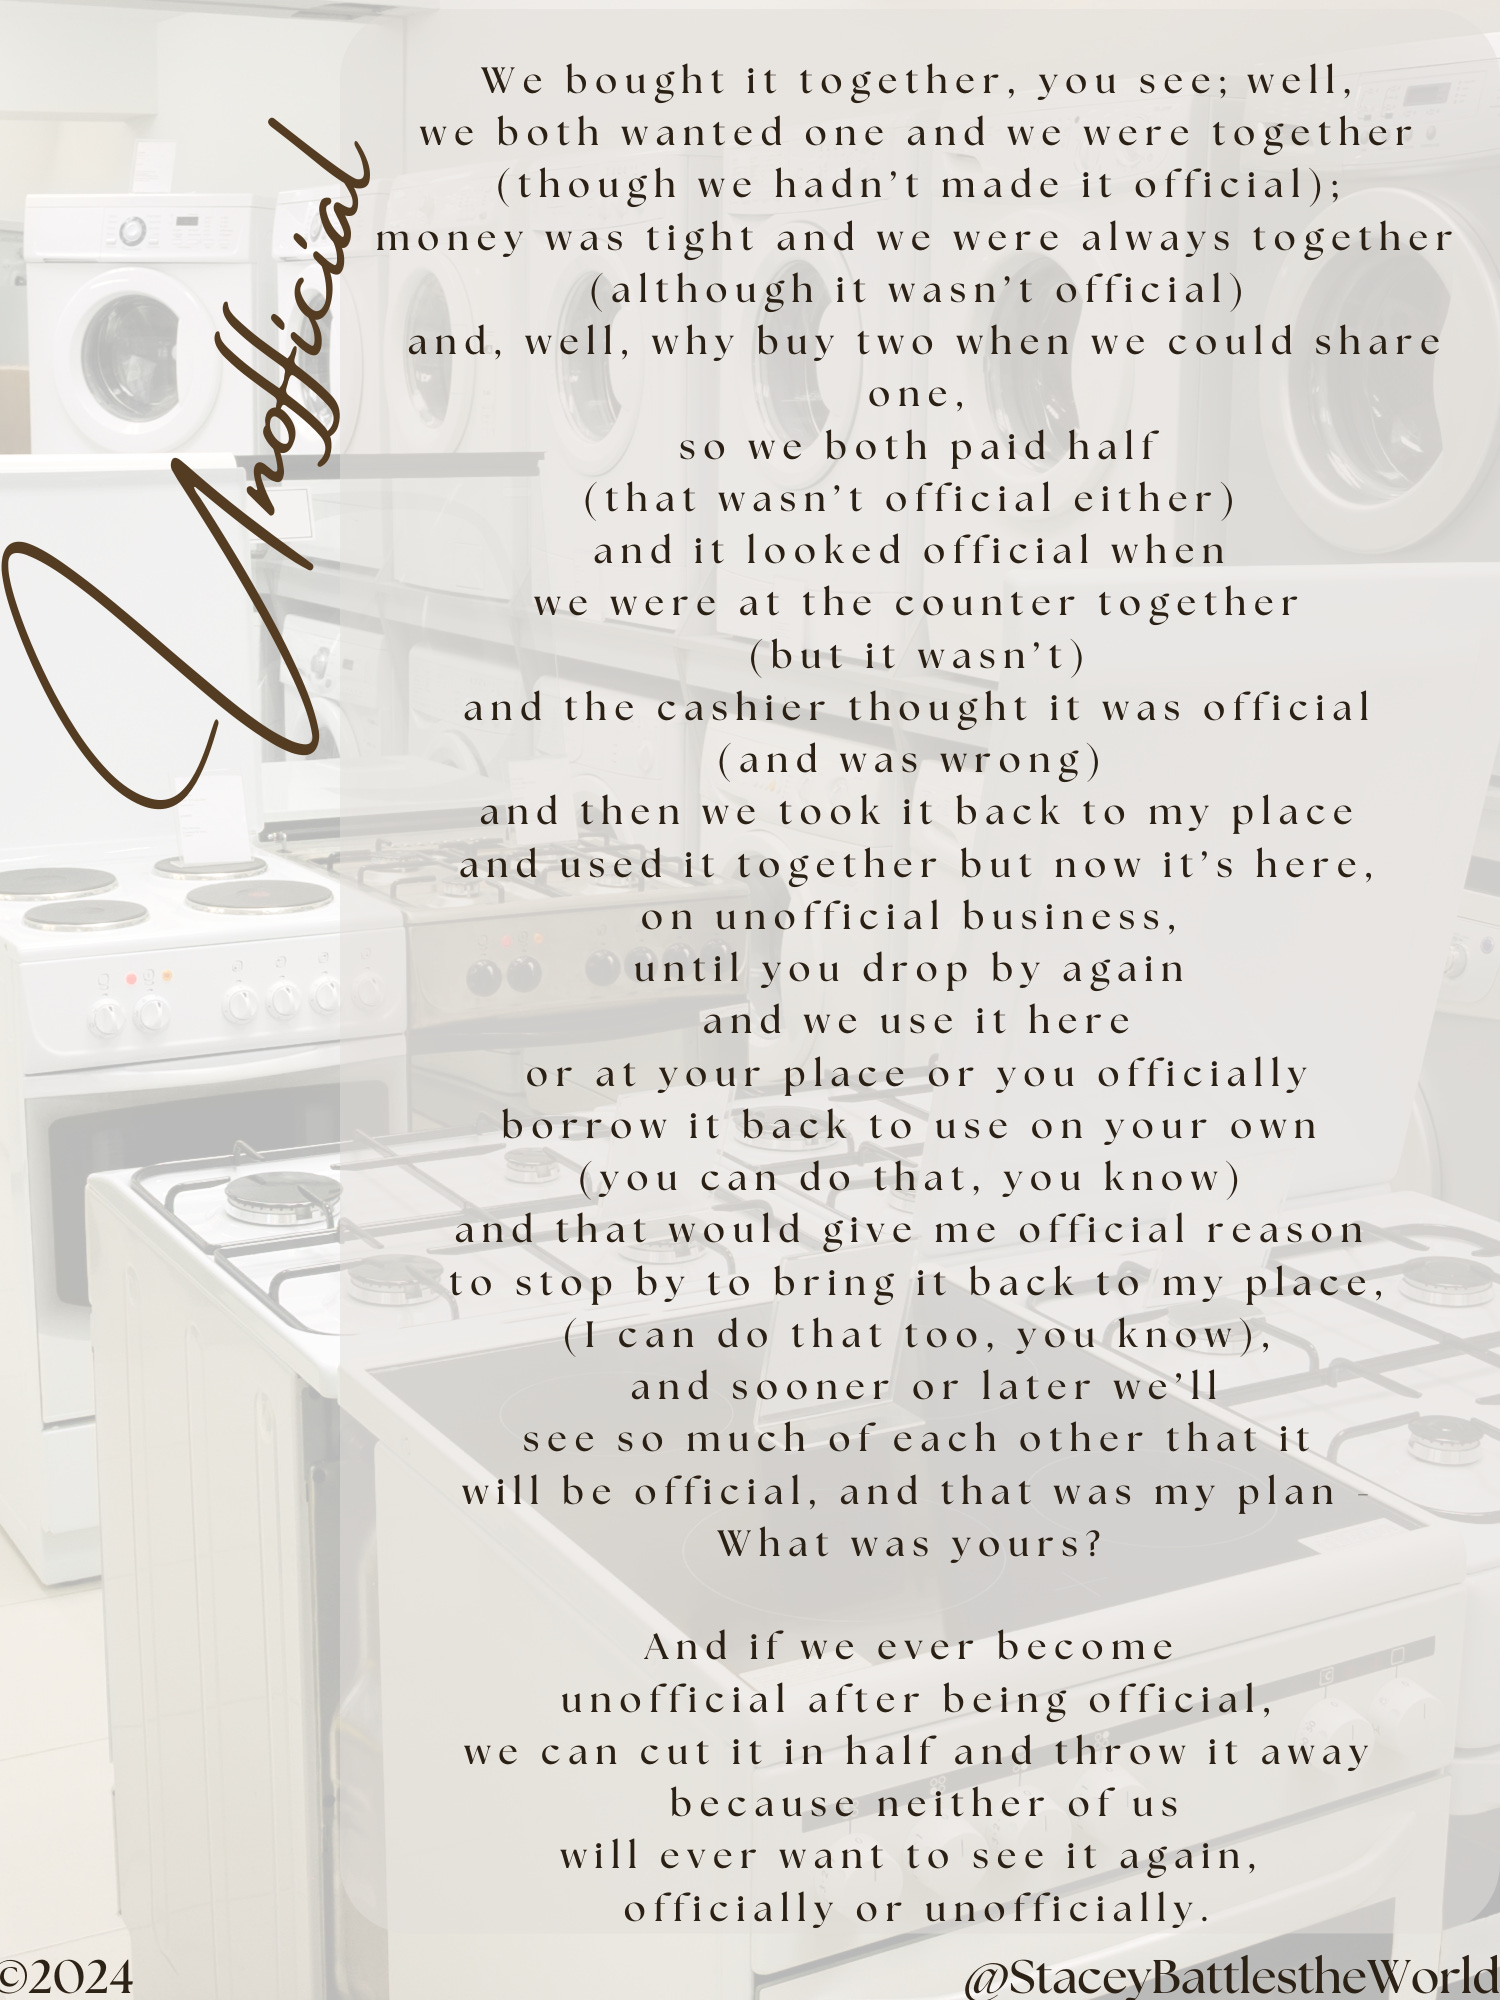 Unofficial
We bought it together, you see; well,
we both wanted one and we were together
(though we hadn’t made it official);
money was tight and we were always together
(although it wasn’t official)
and, well, why buy two when we could share
one,
so we both paid half
(that wasn’t official either)
and it looked official when
we were at the counter together
(but it wasn’t)
and the cashier thought it was official
(and was wrong)
and then we took it back to my place
and used it together but now it’s here,
on unofficial business,
until you drop by again
and we use it here
or at your place or you officially
borrow it back to use on your own
(you can do that, you know)
and that would give me official reason
to stop by to bring it back to my place,
(I can do that too, you know),
and sooner or later we’ll
see so much of each other that it
will be official, and that was my plan -
What was yours?
And if we ever become
unofficial after being official,
we can cut it in half and throw it away
because neither of us
will ever want to see it again,
officially or unofficially.
©2024
@StaceyBattlestheWorld